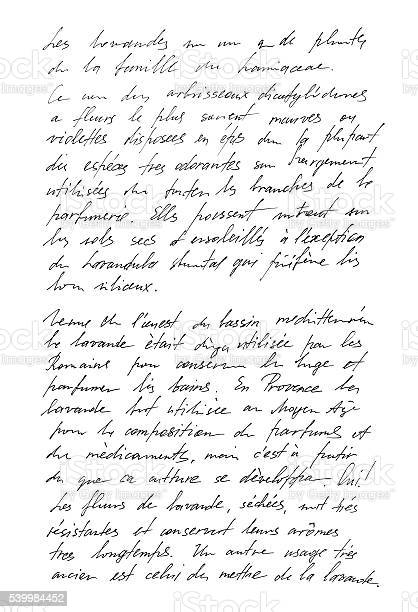 Les lavandes de plantes
de la famille du Lamiaceae.
Ce arbrisseaux dicotylédones
a fleurs le plus souvent mauves ou
violettes disposées en épis la plupart
des espéces tres odorantes largement
utilisées toutes les branches de la
parfumerie. Elles poussent sur
les sols secs ensoleillés à l'exception
du Lavandula qui préfère les
siliceux.
l'ouest du bassin mediterranéen
la lavande était deja utilisée par les
Romains pour conserver le linge et
parfumer les bains. En Provence la
lavande fut utilisée au Moyen Age
pour la composition de parfums et
de médicaments, mais c'est à partir
du que sa culture se développa.
Les fleurs de lavande, séchées, sont tres
résistantes et conservent leurs arômes
tres longtemps. Un autre usage très
ancien est celui de mettre de la lavande.
iStock
by Getty Images
539984452